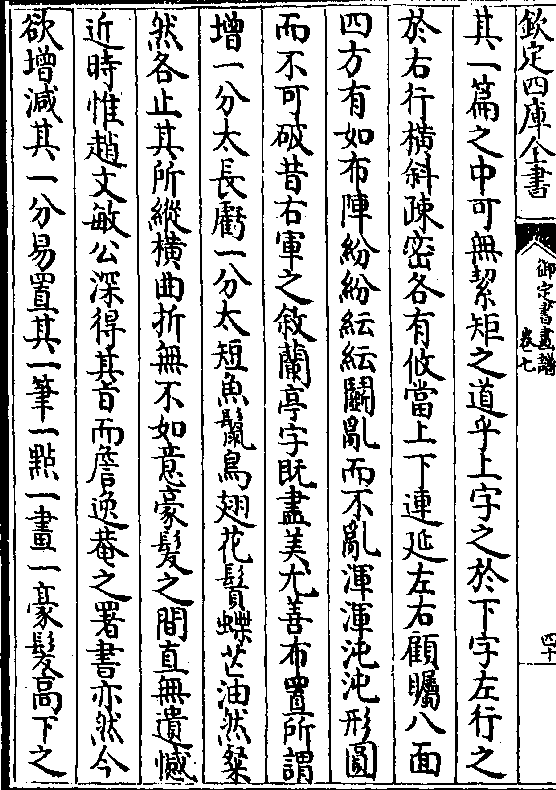 欽定四庫全書
御定書畫譜
卷七
四十
其一篇之中可無絜矩之道乎上字之於下字左行之
於右行橫斜疎密各有攸當上下連延左右顧矚八面
四方有如布陣紛紛紜紜鬬亂而不亂渾渾沌沌形圓
而不可破昔右軍之敘蘭亭字旣盡美尤善布置所謂
增一分太長虧一分太短魚鬛鳥翅花鬚蝶芒油然粲
然各止其所縱橫曲折無不如意豪髮之間直無遺憾
近時惟趙文敏公深得其旨而詹逸菴之署書亦然今
欲增減其一分易置其一筆一㸃一畫一豪髮高下之